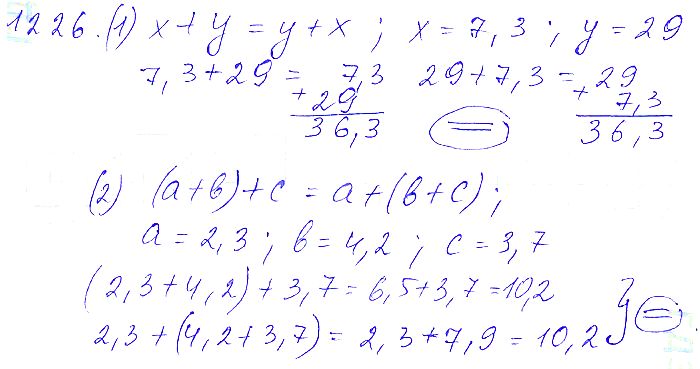 1226. (1) x + y = y + x ; x = 7,3 ; y = 29
7,3 + 29 = 7,3 29 + 7,3 = 29
+ 29 + 7,3
36,3 = 36,3
(2) (a + b) + c = a + (b + c) ;
a = 2,3 ; b = 4,2 ; c = 3,7
(2,3 + 4,2) + 3,7 = 6,5 + 3,7 = 10,2
2,3 + (4,2 + 3,7) = 2,3 + 7,9 = 10,2 } = .